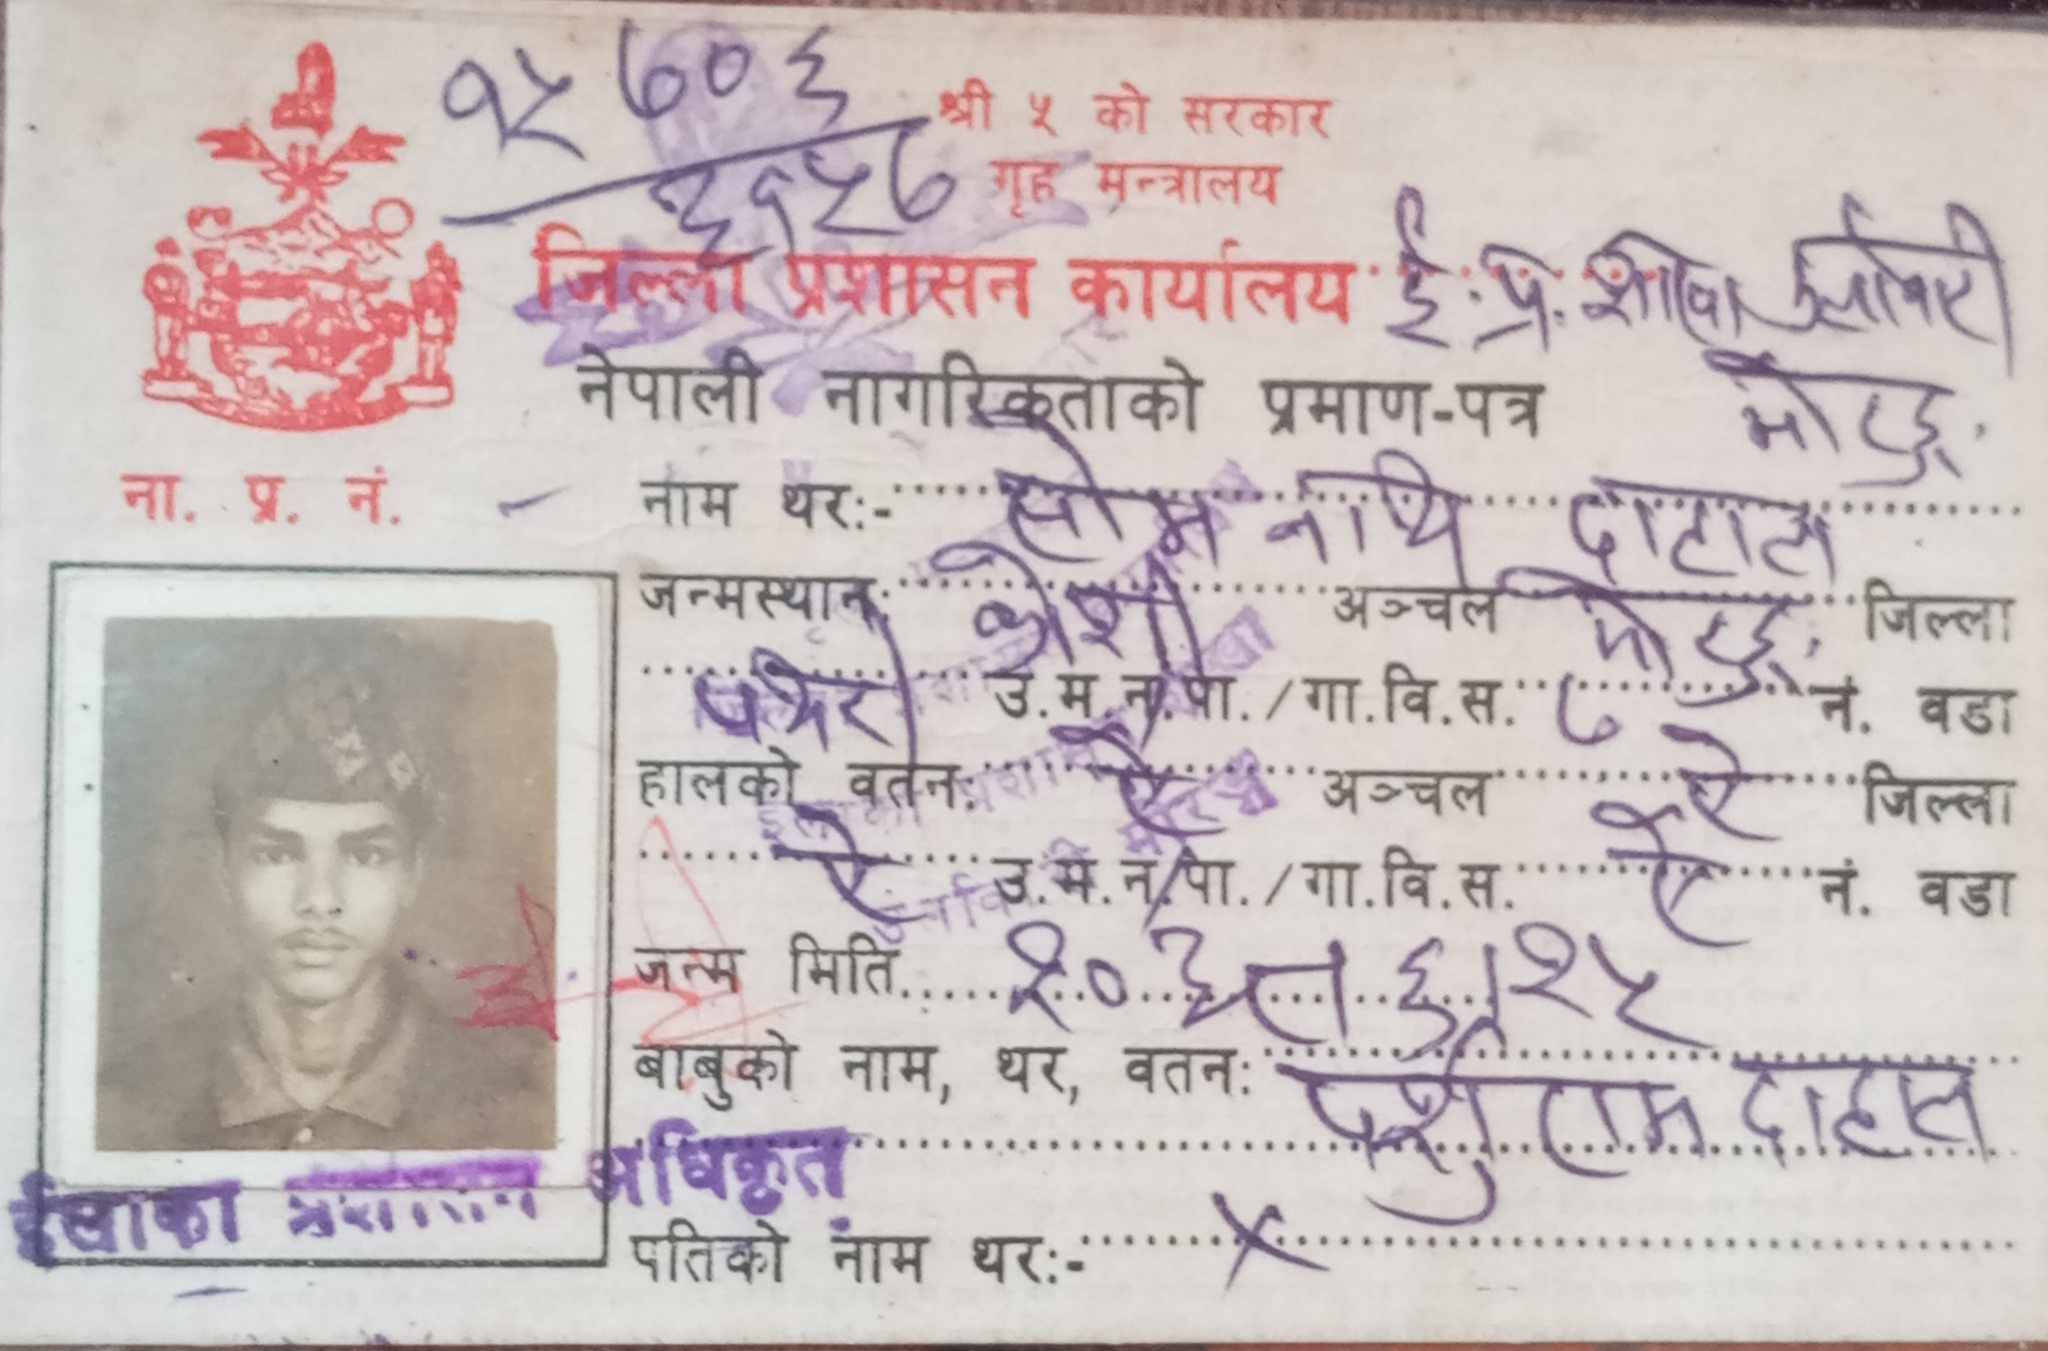 १५७०६
३६५७
श्री ५ को सरकार
गृह मन्त्रालय
जिल्ला प्रशासन कार्यालय ई.प्र.
नेपाली नागरिकताको प्रमाण-पत्र मोरङ
ना. प्र. नं.
नाम थर:- सोम नाथ दाहाल
जन्मस्थान: कोशी अञ्चल मोरङ जिल्ला
पथरी उ.म.न.पा./गा.वि.स. ७ नं. वडा
हालको वतन: ऐ अञ्चल ऐ जिल्ला
ऐ उ.म.न.पा./गा.वि.स. ऐ नं. वडा
जन्म मिति २०३८।६।२५
बाबुको नाम, थर, वतन: पर्शु राम दाहाल
ईलाका प्रशासन अधिकृत
पतिको नाम थर:- X